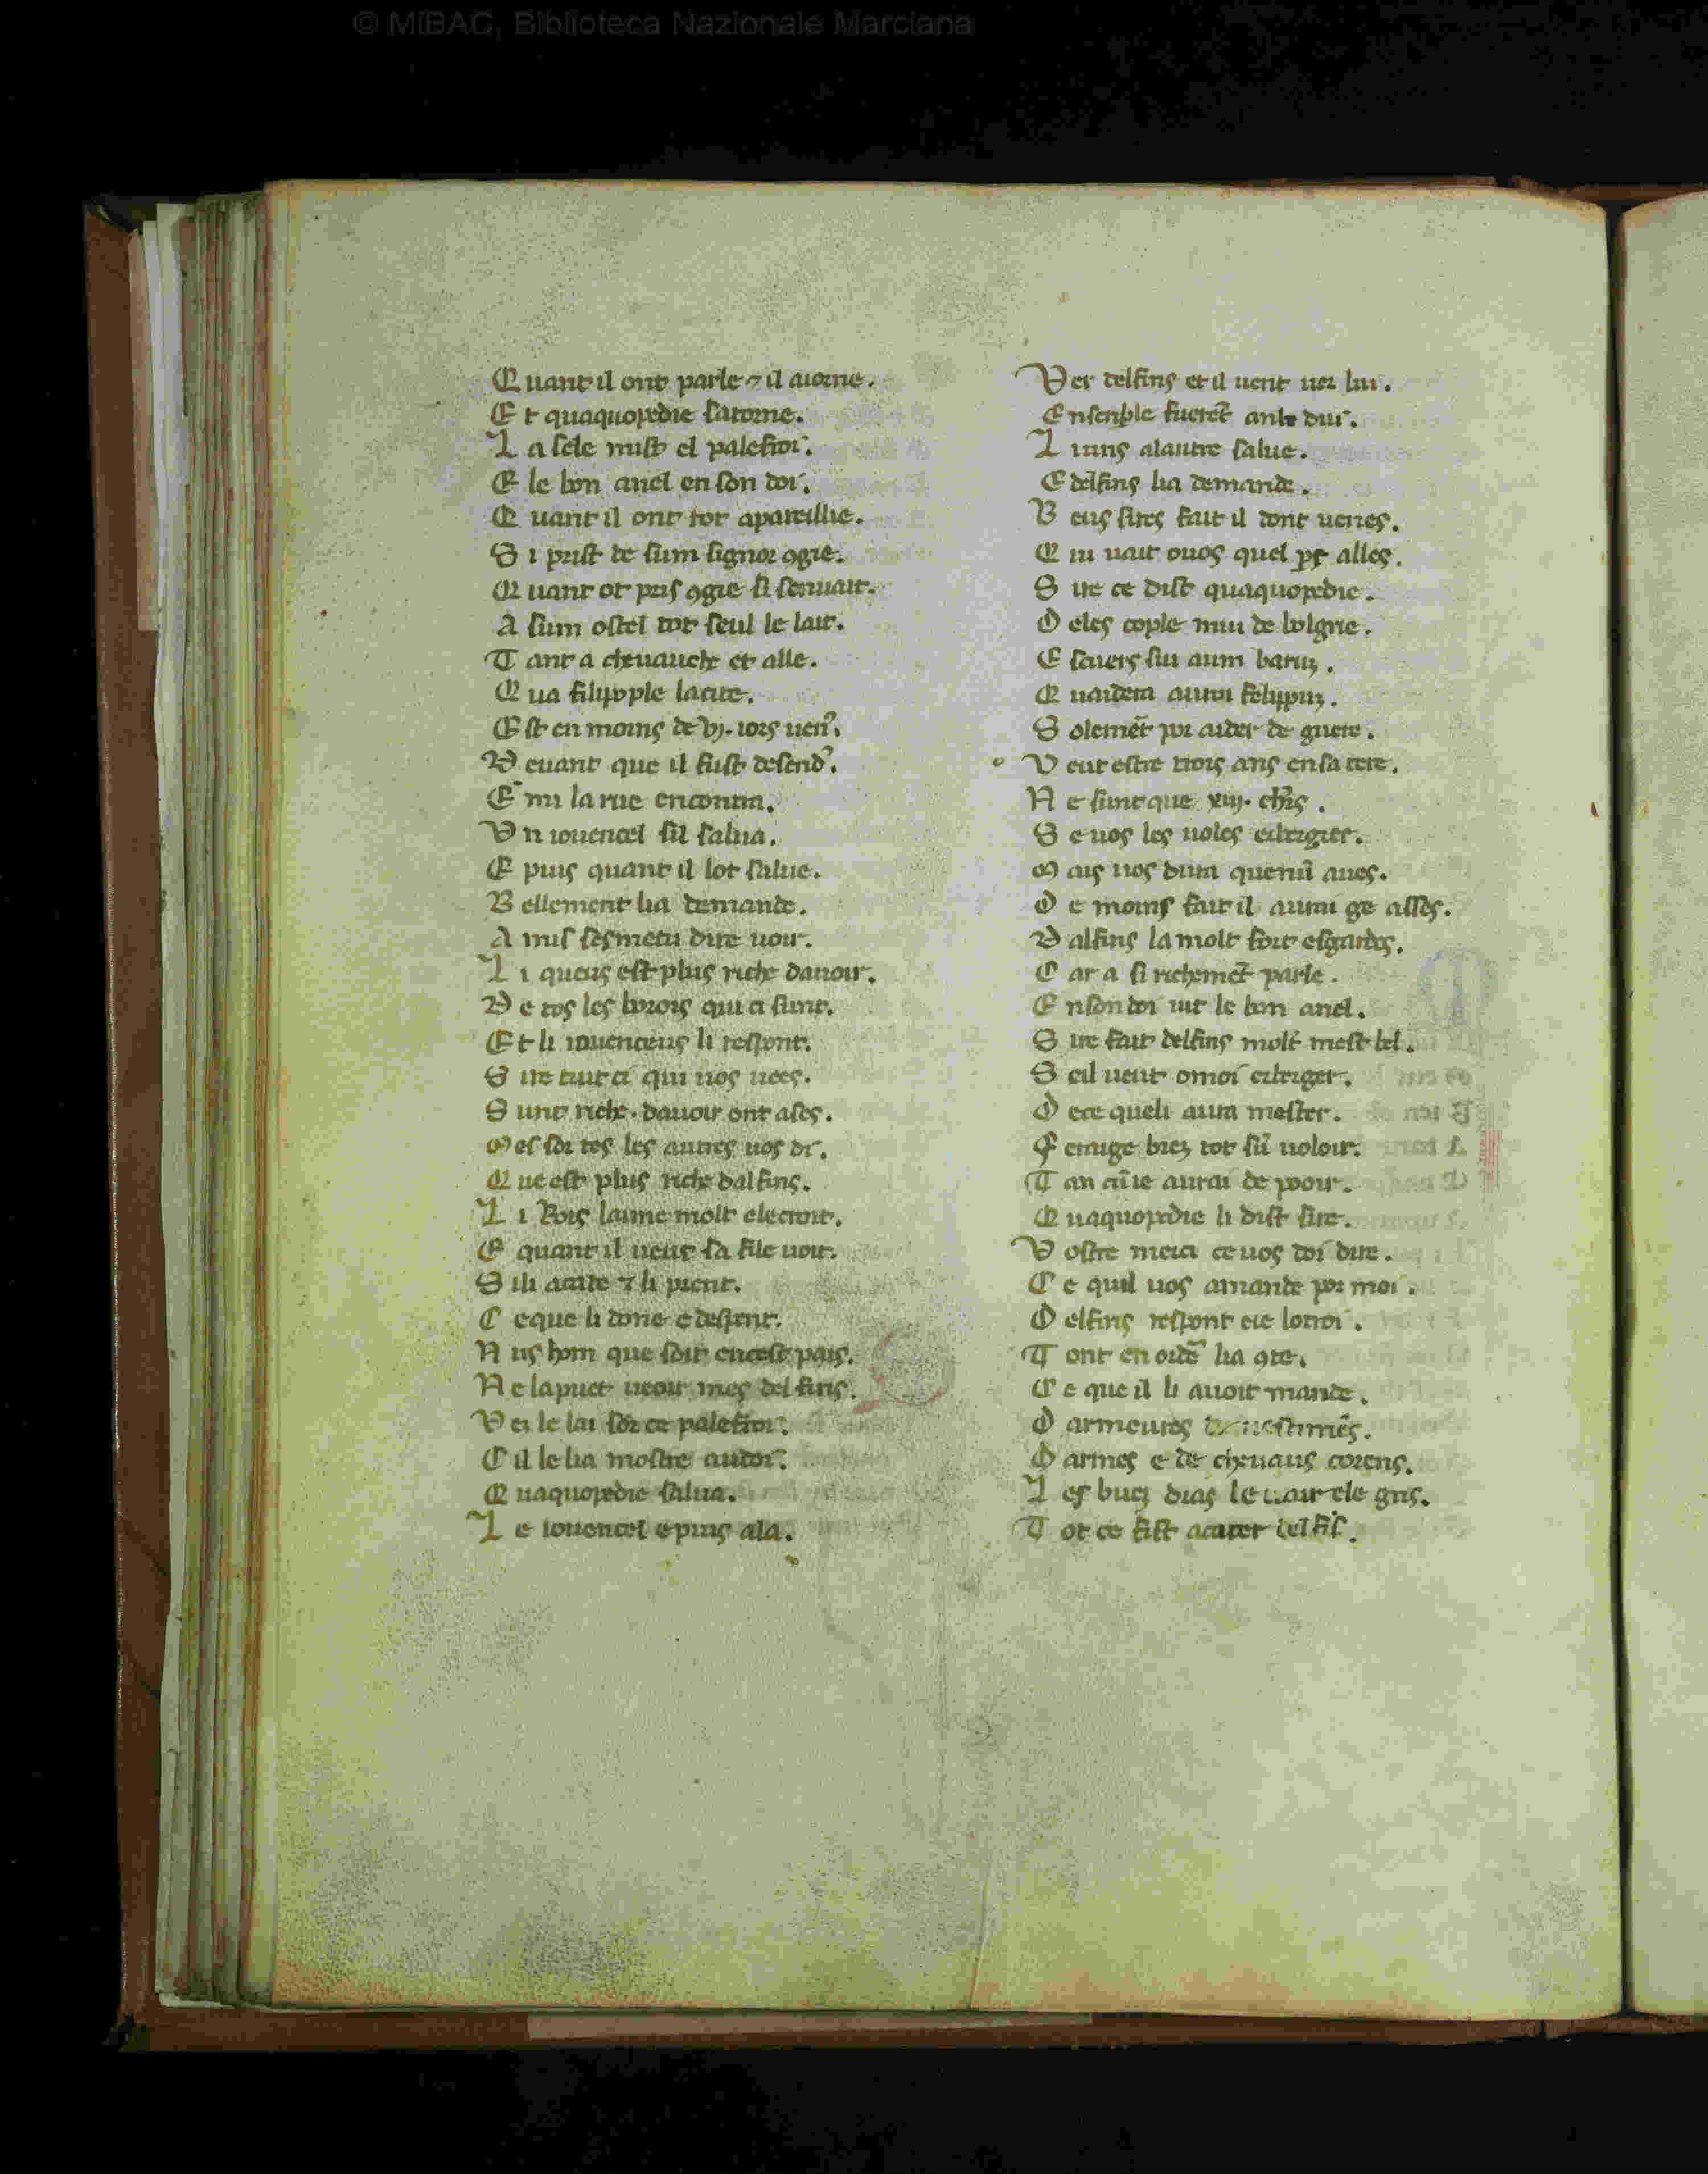 © MiBAC, Biblioteca Nazionale Marciana
Quant il ont parle ⁊ il aiorne.
Et quaquopedie satorne.
La sele mist el palefroi.
E le bon anel en son doi.
Quant il ont tot apareillie.
Si prist de sum signor ꝯgie.
Quant ot pris ꝯgie si senuait.
A sum ostel tot seul le lait.
Tant a cheuauche et alle.
Qua filippople lacite.
Est en moins de vj. iors uenꝰ.
Deuant que il fust desendꝰ.
E mi la rue encontra.
Vn iouencel sil salua.
E puis quant il lot salue.
Bellement lia demande.
Amis sesmetu dire uoir.
Li queus est plus riche dauoir.
De tos les borois qui ci sunt.
Et li iouenceus li respont.
Sire tuit ci qui uos uees.
Sunt riche. dauoir ont ases.
Mes sor tos les autres uos di.
Que est plus riche dalfins.
Li Rois laime molt elecroit.
E quant il ueut sa file uoir.
Sili acate ⁊ li prent.
Ceque li done e despent.
Nus hom que soit encest pais.
Ne lapuet ueoir mes delfins.
Vez le lai sor ce palefroi.
Cil le lia mostre audoi.
Quaquopedie salua.
Le iouencel epuis ala.
Ver delfins et il uent uer lui.
Ensenple fueret̄ anbedui.
Liuns alautre salue.
E delfins lia demande.
Beus sires fait il dont uenes.
Qui uait ouos quel ꝑs alles.
Sire ce dist quaquopedie.
Deles cople mui de bolgrie.
E seuers sui aum baruz.
Quaidera auroi felippuz.
Solemēt por aider de guere.
Veut estre trois ans ensa tere.
Ne sunt que xiij. chrs̄.
Se uos les uoles erbergier.
Mais uos dura quenū aues.
De moins fait il aurai ge asses.
Dalfins la molt fort esgardes.
Car a si richemēt parle.
Enson doi uit le bon anel.
Sire fait delfins molt mest bel.
Seil ueut omoi erberger.
Dece queli aura mester.
Ferauge biez tot sū uoloir.
Tan cūie aurai de pooir.
Quaquopedie li dist sire.
Vostre merci ce uos doi dire.
Ce quil uos amande por moi.
Delfins respont eie lotroi.
Tont en oirē lia ꝯte.
Ce que il li auoit mande.
Darmeures uestimēs.
Darmes e de cheuaus corens.
Les buez dras le uair ele gris.
Tot ce fist acater delfis.